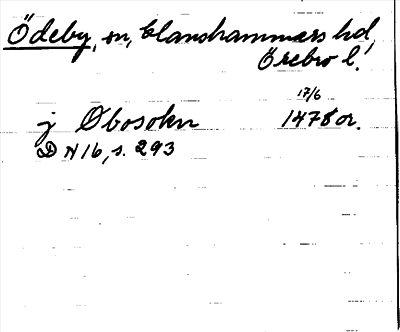 Ödeby, sn, Glanshammars hd,
Örebro l.
17/6
j Øbosokn 1478 or.
D N 16, s. 293